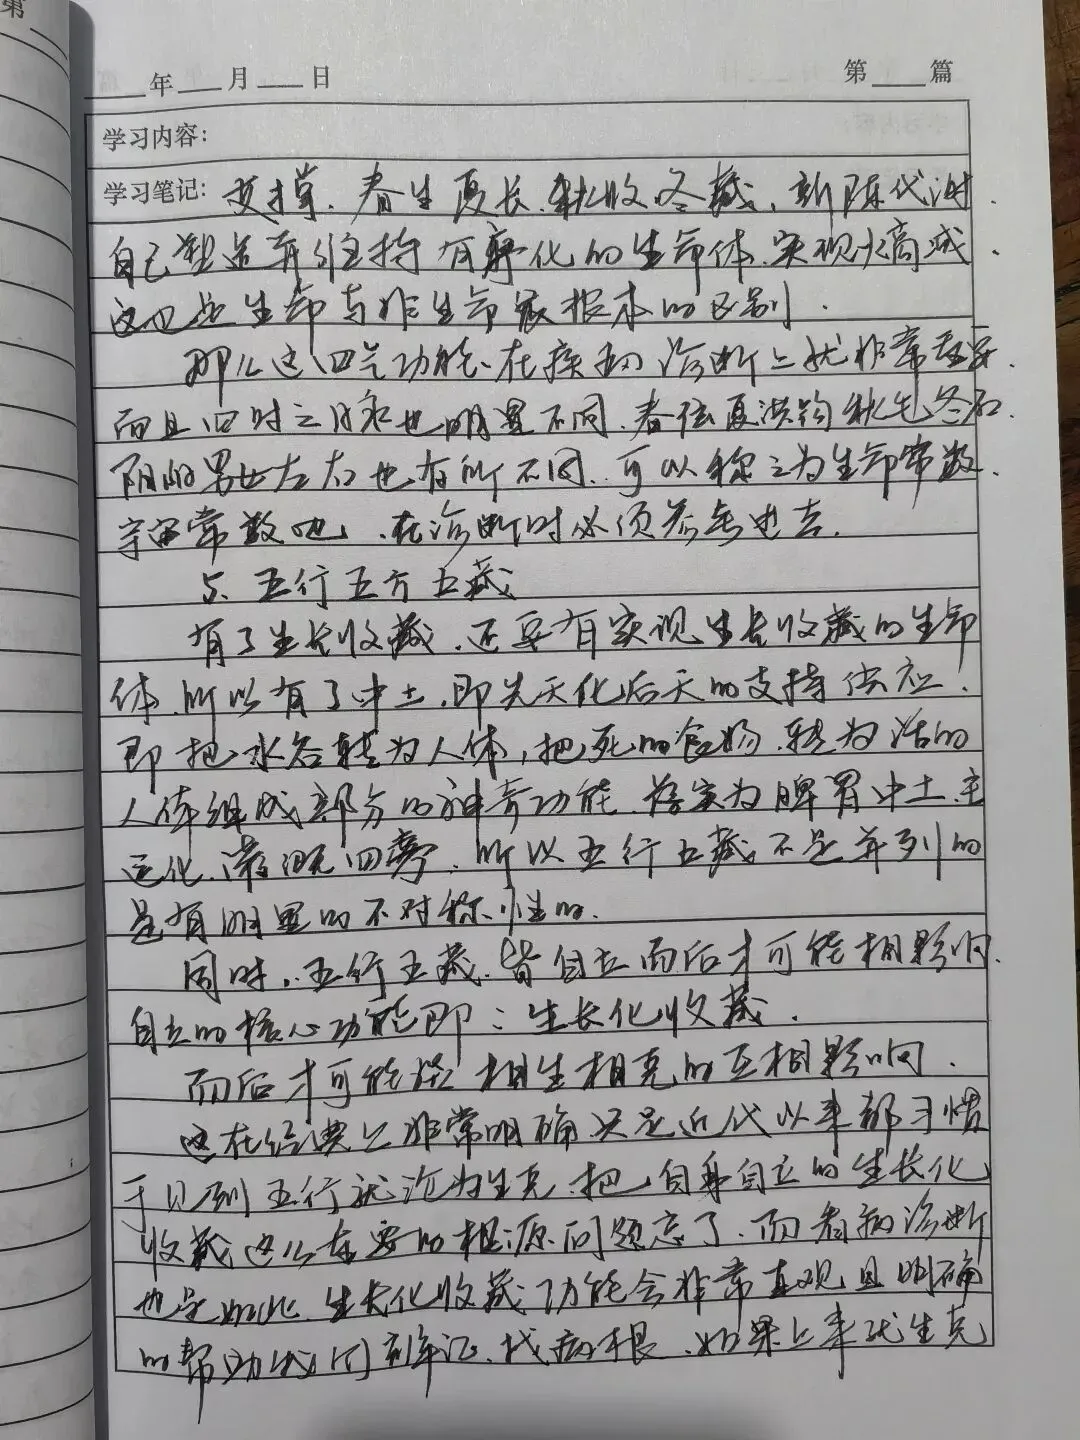 第
年 月 日 第 篇
学习内容：
学习笔记：支撑．春生夏长．秋收冬藏．新陈代谢．
自己塑造并维持有孵化的生命体．实现水高减．
这也是生命与非生命最根本的区别．
那么这四气功能、在疾病诊断上就非常重要．
而且四时之脉象也明显不同．春弦夏洪钩秋毛冬石．
阴阳男女左右也有所不同．可以称之为生命常数．
宇宙常数吧．在诊断时必须参考进去．
5、五行五方五藏
有了生长收藏．还要有实现生长收藏的生命
体．所以有了中土．即先天化后天的支持供应．
即把水谷转为人体，把死的食物．转为活的
人体组成部分的神奇功能．落实为脾胃中土．主
运化．灌溉四旁．所以五行五藏不是并列的
是有明显的不对称性的．
同时．五行五藏．皆自立而后才可能相影响．
自立的核心功能即：生长化收藏．
而后才可能谈相生相克的互相影响．
这在经典上非常明确只是近代以来都习惯
于见到五行就论为生克．把自身自立的生长化
收藏这么重要的根源问题忘了．而看病诊断
也是如此．生长化收藏功能会非常直观且明确
的帮助我们刻辨证．找病根．如果上来就生克